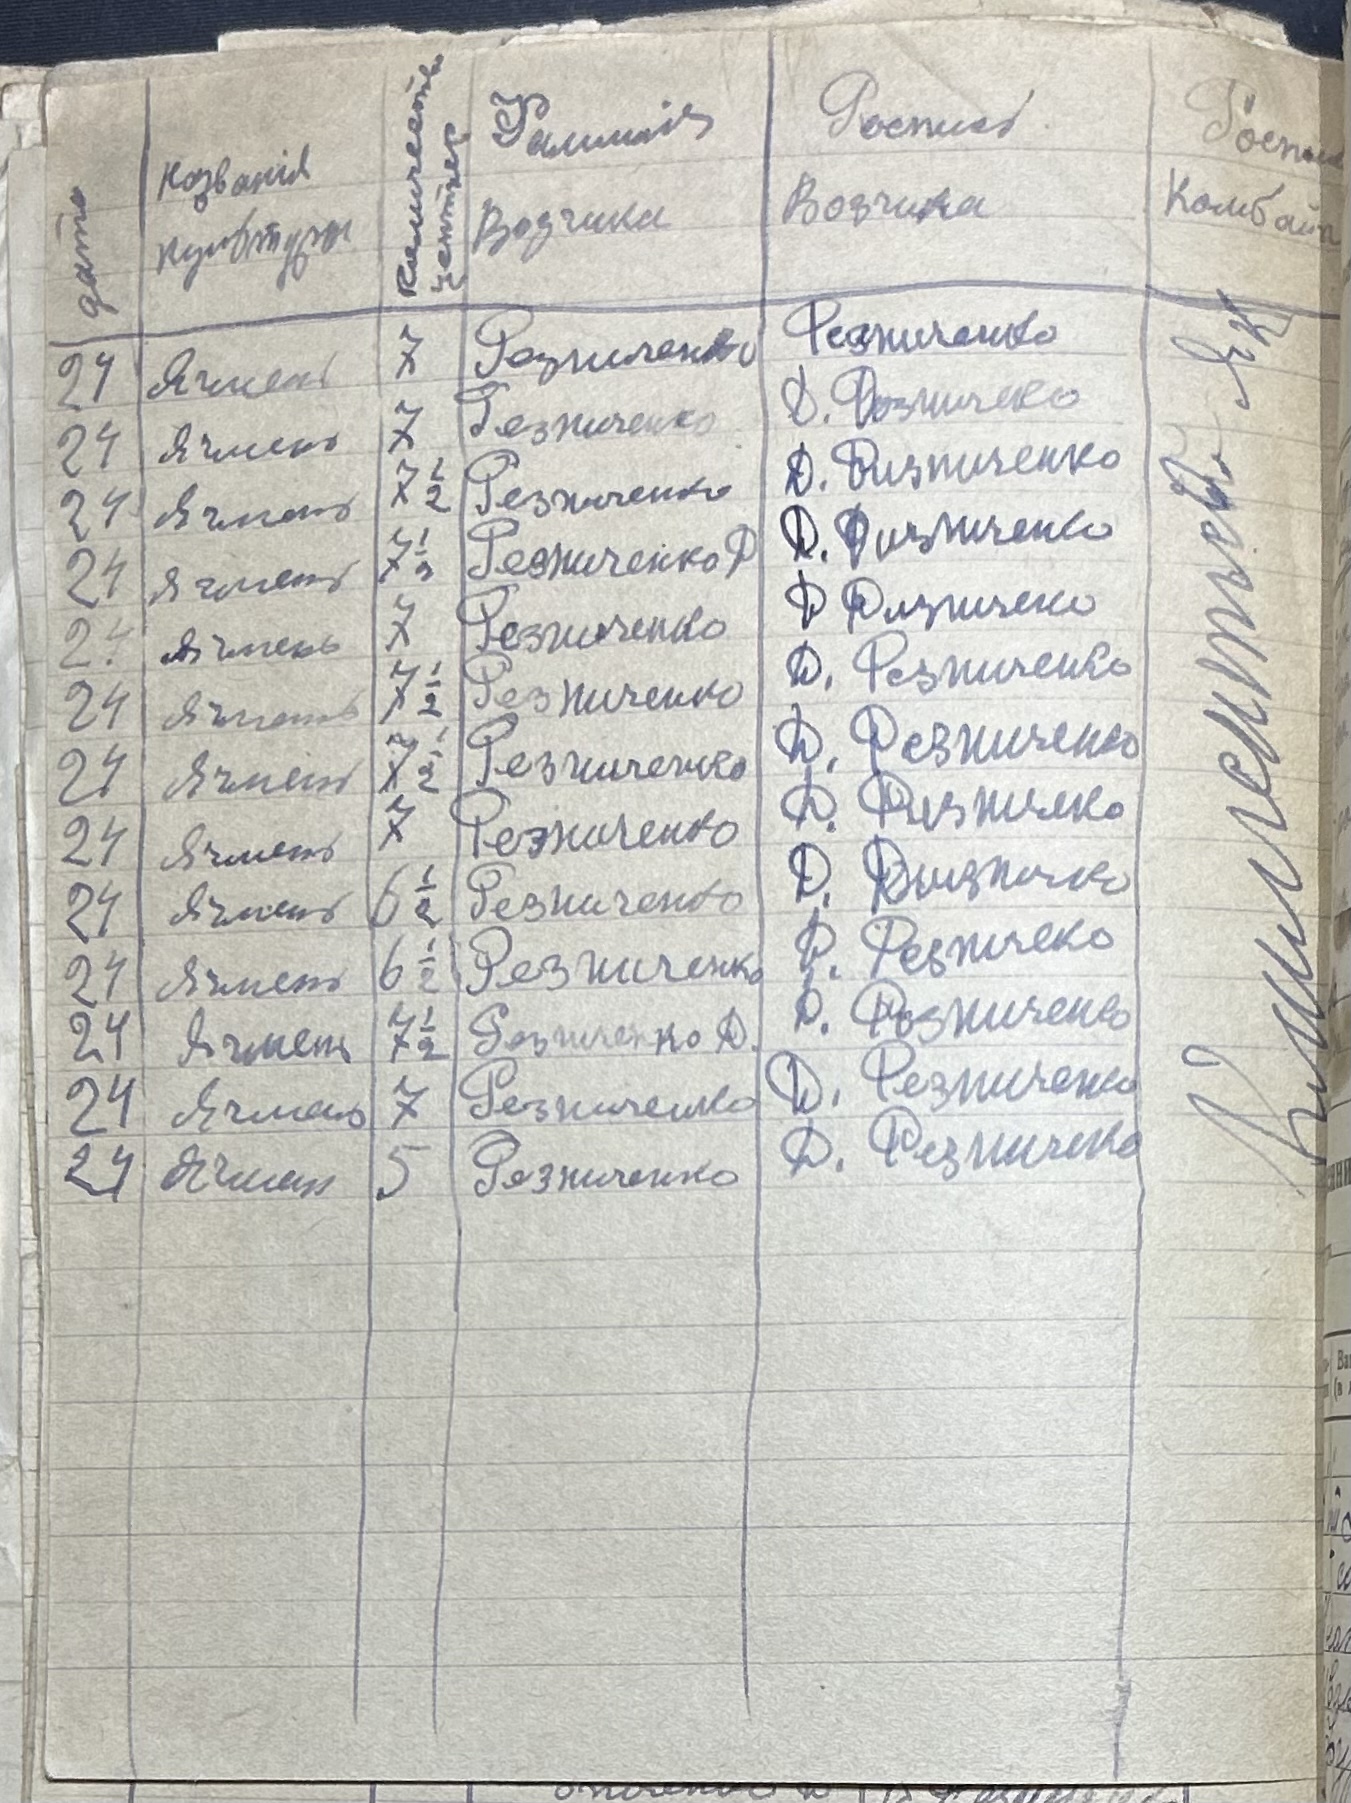 дата | Названія культуры | Количество центнер | Фамилія Возчика | Роспись Возчика | Роспись Комбайн
24 Ячмень 7 Резниченко Резниченко
24 Ячмень 7 Резниченко Д. Резниченко
24 Ячмень 7 1/2 Резниченко Д. Ризниченко
24 Ячмень 7 1/2 Резниченко Д Д. Ризниченко
24 Ячмень 7 Резниченко Д Ризничеко
24 Ячмень 7 1/2 Резниченко Д. Резниченко
24 Ячмень 7 1/2 Резниченко Д. Резниченко
24 Ячмень 7 Резниченко Д.
24 Ячмень 6 1/2 Резниченко Д.
24 Ячмень 6 1/2 Резниченко Д. Резничеко
24 Ячмень 7 1/2 Резниченко Д. Д. Резниченко
24 Ячмень 7 Резниченко Д. Резниченко
24 Ячмен 5 Резниченко Д. Резниченко